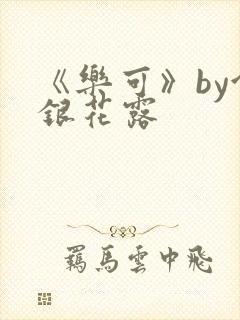 《樂可》by
銀花露
羈馬雲中飛